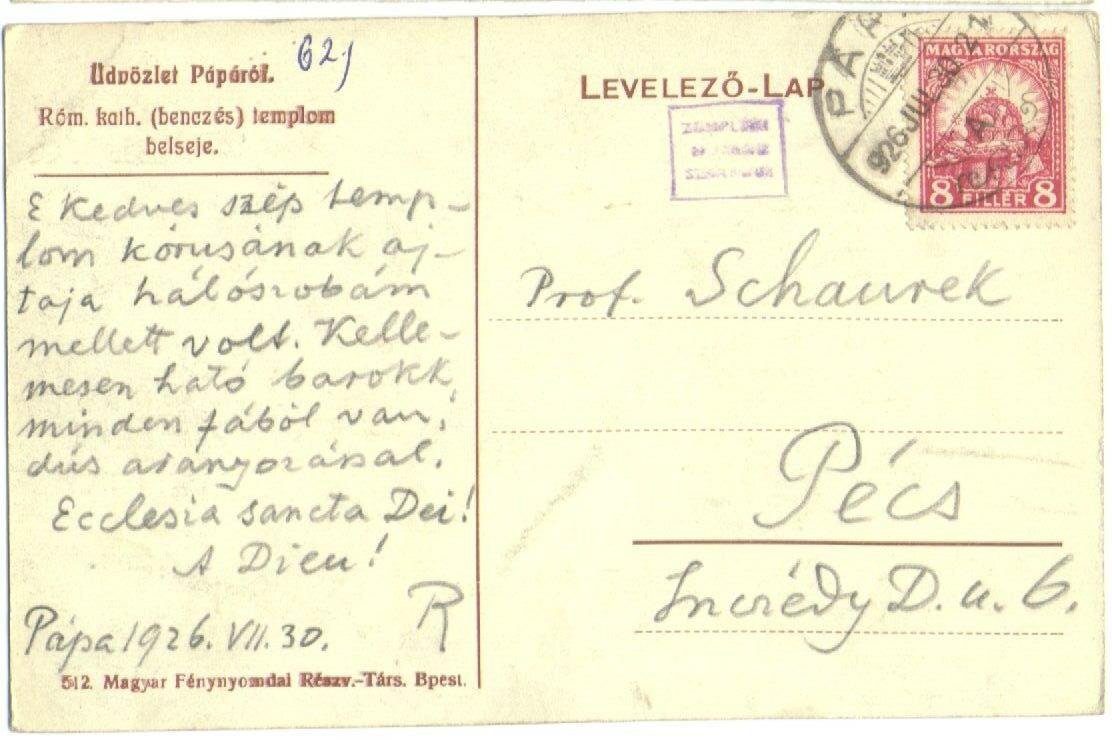 Üdvözlet Pápáról.
Róm. kath. (benczés) templom
belseje.
62)
E kedves szép temp-
lom kórusának aj-
taja hálószobám
mellett volt. Kelle-
mesen ható barokk,
minden fából van,
dús aranyozással.
Ecclesia sancta Dei!
A Dieu!
R
Pápa 1926. VII. 30.
512. Magyar Fénynyomdai Részv.-Társ. Bpest.
LEVELEZŐ-LAP
PÁPA
926 JUL 30. 21
A
MAGYARORSZÁG
8 FILLÉR 8
Prof. Schaurek
Pécs
Inczédy D. u. 6.